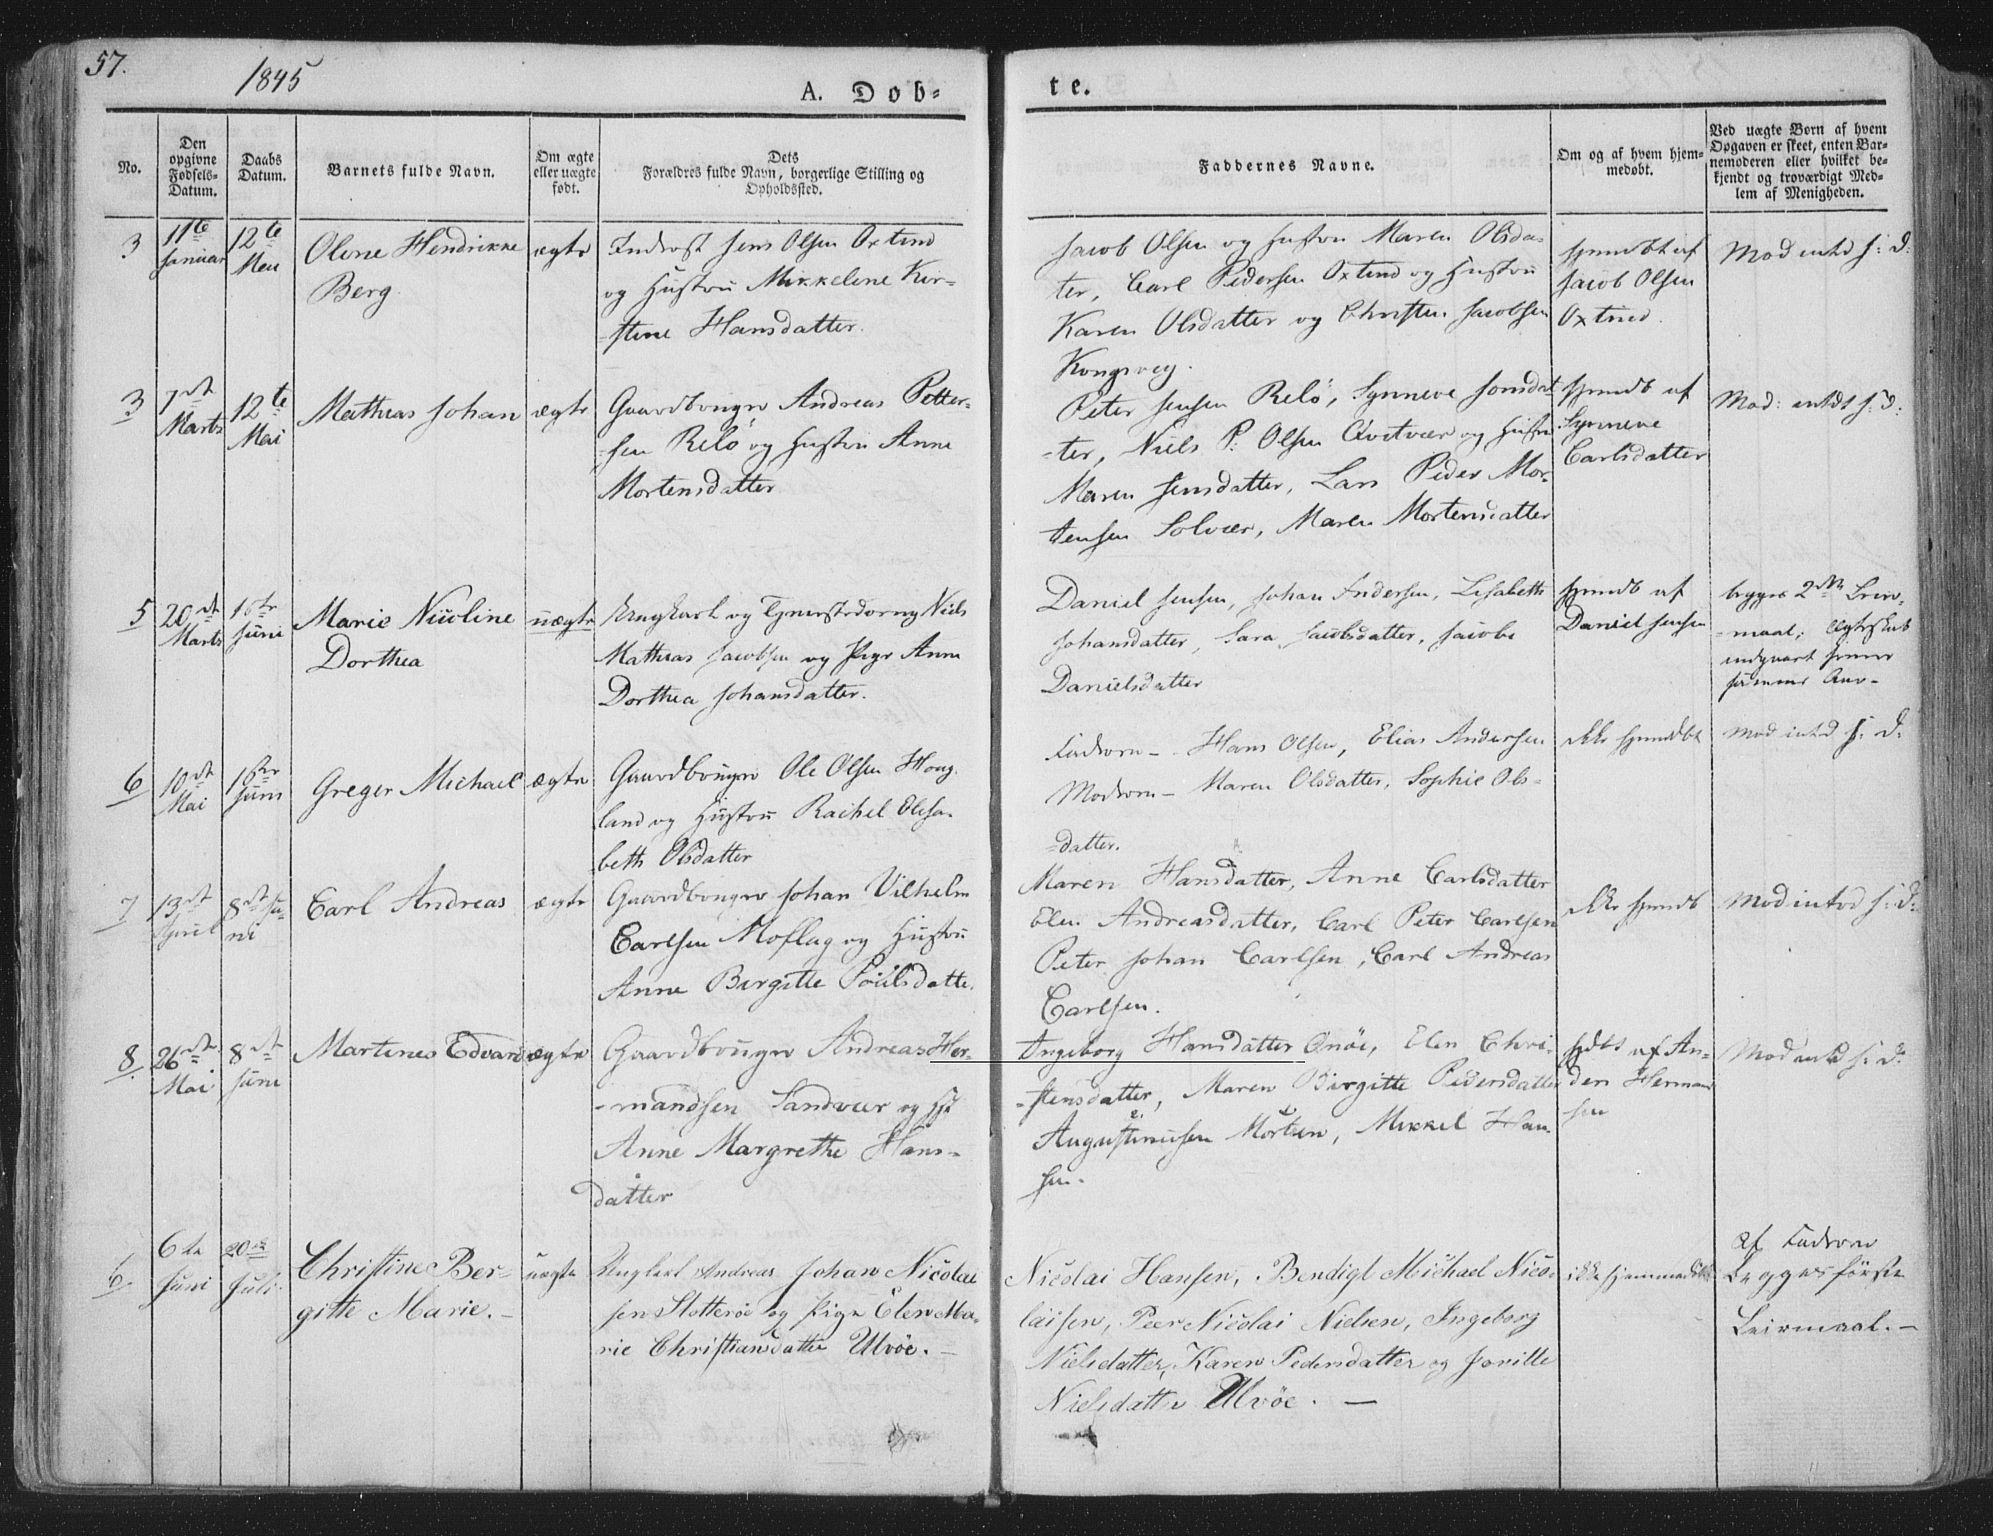 57.
1845
A. Døb-
te.
No.
Den opgivne Fødsels-Datum.
Daabs Datum.
Barnets fulde Navn.
Om ægte eller uægte født.
Dets Forældres fulde Navn, borgerlige Stilling og Opholdssted.
Faddernes Navne.
Om og af hvem hjem-medøbt.
Ved uægte Børn af hvem Opgaven er skeet, enten Bar-nemoderen eller hvilket be-kjendt og troværdigt Med-lem af Menigheden.
3
11te Januar
12te Mai
Olene Hendrikke
Berg
ægte
Jens Olsen Oxtind
og Hustru Mikkeline Kir-
stine Hansdatter.
Jacob Olsen og Hustru Maren Olsdat-
ter, Carl Pedersen Oxtind og Hustru
Karen Olsdatter og Christen Jacobsen
Kongsvey.
hjemdøbt af
Jacob Olsen
Oxtind.
3
7de Marts
12te Mai
Mathias Johan
ægte
Gaardbruger Andreas Petter-
sen Relø og Hustru Anne
Mortensdatter
Peter Jensen Relø, Synneve Jonsdat-
ter, Niels P. Olsen Qvitvær og Hustru
Maren Jensdatter, Lars Peder Mor-
tensen Solvær, Maren Mortensdatter
hjemdøbt af
Synneve
Carlsdatter
5
20de Marts
16de Juni
Marie Nicoline
Dorthea
uægte
Ungkarl og Niels
Mathias Jacobsen og Pige Anne
Dorthea Johansdatter.
Daniel Jensen, Johan Andersen, Lisabeth
Johansdatter, Sara Jacobsdatter, Jacobe
Danielsdatter
hjemdøbt af
Daniel Jensen
begges 2det Leier-
maal;
6
10de Mai
16de Juni
Greger Michael
ægte
Gaardbruger Ole Olsen Houg-
land og Hustru Rachel Elisa-
beth Olsdatter
Fadrene - Hans Olsen, Elias Andersen
Modrene - Maren Olsdatter, Sophie Ols-
datter.
ikke hjemdøbt
7
13de April
8de Ju-
ni
Carl Andreas
ægte
Gaardbruger Johan Vilhelm
Carlsen Moflag og Hustru
Anne Birgitte Poulsdatter.
Maren Hansdatter, Anne Carlsdatter
Elen Andreasdatter, Carl Peter Carlsen
Peter Johan Carlsen, Carl Andreas
Carlsen.
ikke hjemdøbt
8.
26de Mai
8de Juni
Martines Edvard
ægte
Gaardbruger Andreas Her-
mandsen Sandvær og Hst
Anne Margrethe Hans-
datter
Ingeborg Hansdatter Onøe, Elen Chri-
stensdatter, Maren Birgitte Pedersdatter
Augustinusen Morten, Mikkel Han-
sen.
hjdbt af An-
ders Herman-
sen
6
6te Juni
20de Juli
Christine Ber-
gitte Marie. -
uægte
Ungkarl Andreas Johan Nicolai
sen Slotterøe og Pige Elen Ma-
rie Christiansdatter Ulvøe. -
Nicolai Hansen, Bendigt Michael Nico-
laisen, Peer Nicolai Nielsen, Ingeborg
Nielsdatter, Karen Pedersdatter og
Nielsdatter Ulvøe. -
ikke hjemmedøbt
af Fadrene
Begges første
Leirmaal. -